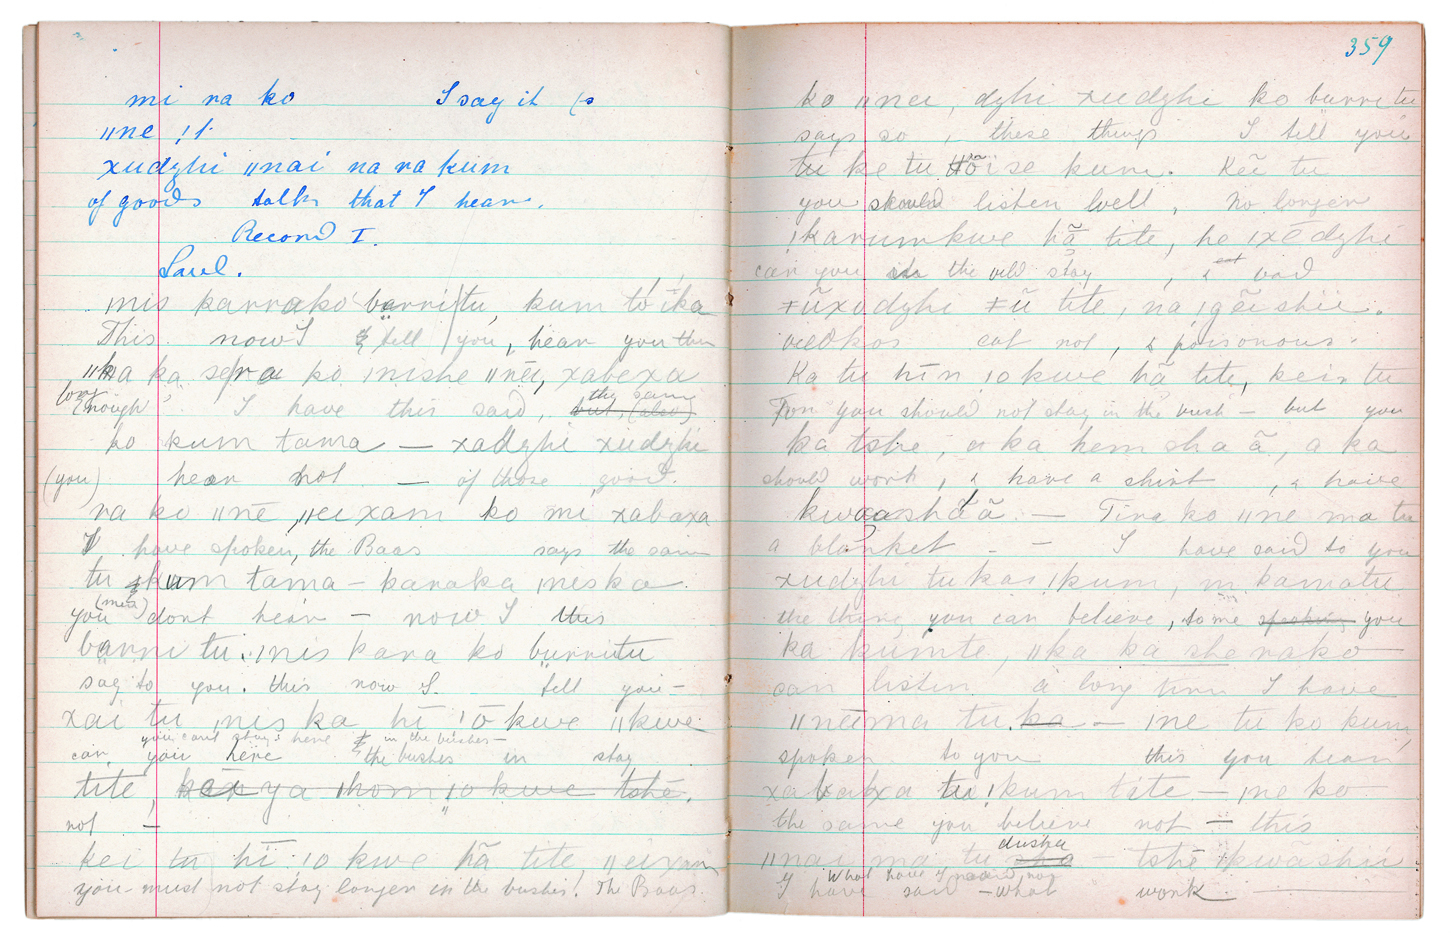 mi ra ko I say it (s
ǁne ; !.
xudzhi ǁnai na ra kum
of goods talk that I hear.
Record I.
Saul.
mis karrako barri tu, kum to ika
This. now I tell you, hear you
ǁka ka se ra ko ınishe ǁnēi, xabexa
long
enough I have this said, the same
but (also)
ko kum tama — xadzhi xudzhi
(you) hear not — of those good.
ra ko ǁnē, ǁeixam ko mi xabaxa
I have spoken, the Baas says the same
tu kum tama – karaka ıneska
(men)
you dont hear — now I this
barri tu. ınis kara ko burritu
say to you. this now I tell you —
xai tu ınis ka hī ı ō kwe ǁkwe
you can't stay here in the bushes —
can you here the bushes in stay
tite, ya ıhom ıo kwe tshē.
not —
kei tu hī ıo kwe hā tite ǁeixam
you must not stay longer in the bushes! The Baas.
359
ko ǁnei, dzhi xudzhi ko burri tu
says so, these things I tell you
tu ke tu se kum. Keĩ tu
you should listen well, No longer
!karumkwe hã tite, he ıxōdzhi
can you the veld stay, & bad
ǂũxodzhi ǂũ tite, na ıgẽi shie.
veldkos eat not, & poisonous.
Ka tu hīn ıo kwe hã tite, keis tu
For you should not stay in the bush — but you
ka tshē, a ka hemsha ã, a ka
should work, & have a shirt, & have
kwaasha ã. — Tira ko ǁne ma tu
a blanket — – I have said to you
xudzhi tu kas !kum, m kamatu
the thing you can believe, to me speaking you
ka kumte, ǁka ka she rako
can listen a long time I have
ǁnēima tu ka — ıne tu ko kum,
spoken to you this you hear
xabaxa tu !kum tite — ıne ko
the same you believe not — this
dusha
ǁnai ma tu sha — tshē ıkwãshii
What have I
I have said – what work